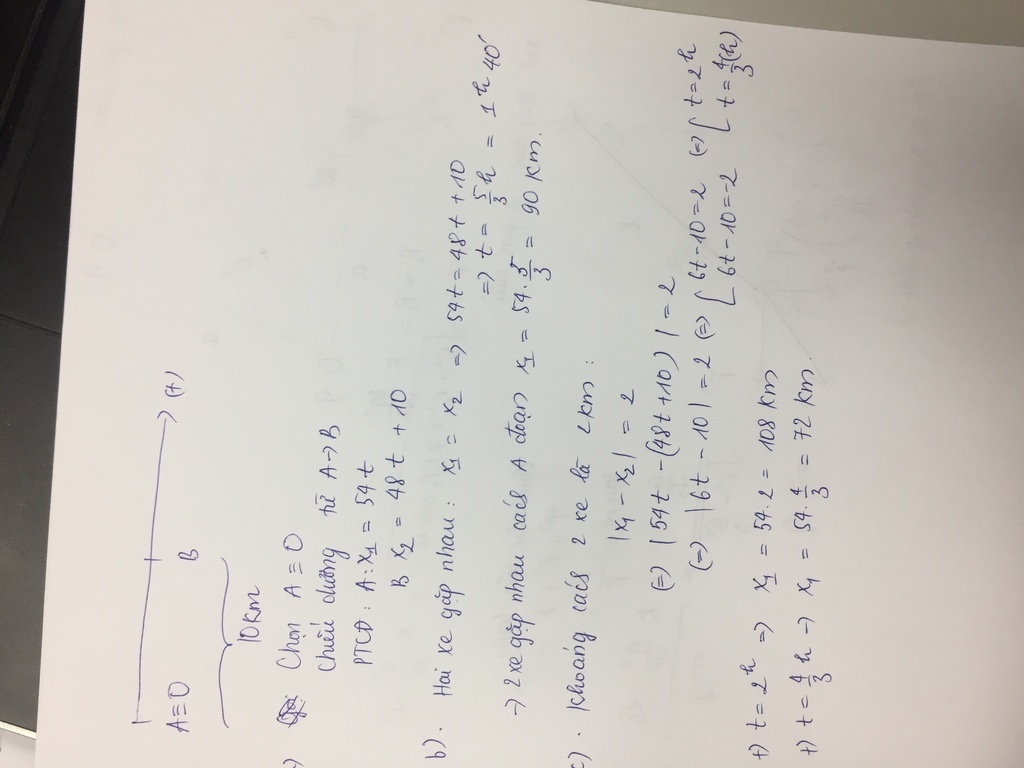 A≡O B (+)
10km
a) Chọn A≡O
Chiều dương từ A→B
PTCĐ: A: x₁ = 54t
B x₂ = 48t + 10
b). Hai xe gặp nhau: x₁ = x₂ => 54t = 48t + 10
=> t = 5/3 h = 1h 40'
→ 2 xe gặp nhau cách A đoạn x₁ = 54. 5/3 = 90 km.
c). Khoảng cách 2 xe là 2km:
|x₁ - x₂| = 2
(=) |54t - (48t+10)| = 2
(=) |6t - 10| = 2 (=) [ 6t-10=2 (=) [ t=2h
[ 6t-10=-2 [ t=4/3(h)
+) t = 2h => x₁ = 54.2 = 108 km
+) t = 4/3 h → x₁ = 54. 4/3 = 72 km.